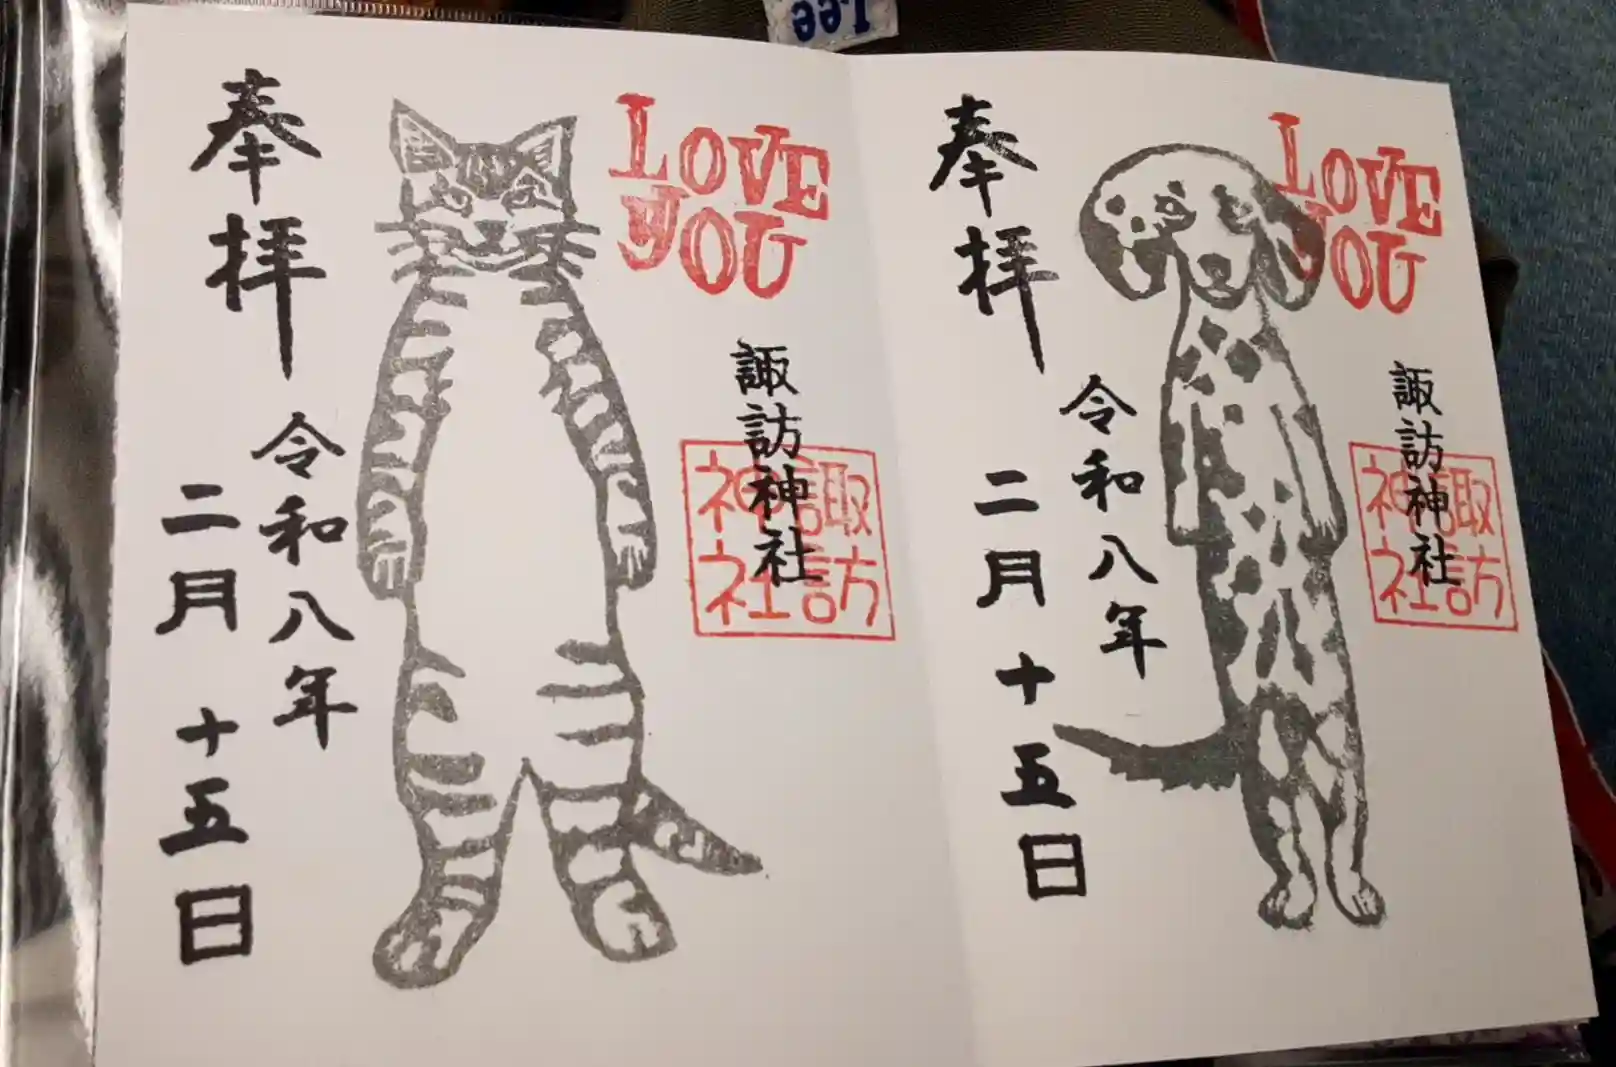 Lee
奉拝
令和八年
二月十五日
LOVE
YOU
諏訪神社
諏訪
神社
奉拝
令和八年
二月十五日
LOVE
YOU
諏訪神社
諏訪
神社